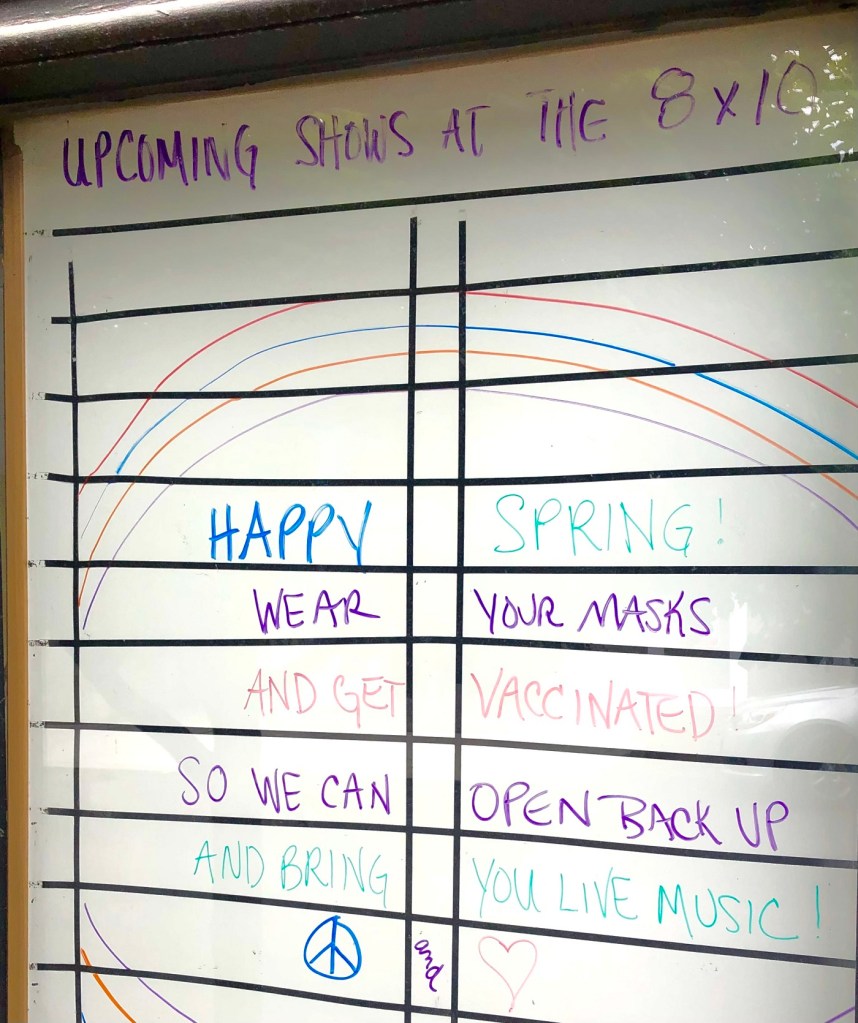 UPCOMING SHOWS AT THE 8x10
HAPPY SPRING!
WEAR YOUR MASKS
AND GET VACCINATED!
SO WE CAN OPEN BACK UP
AND BRING YOU LIVE MUSIC!
and